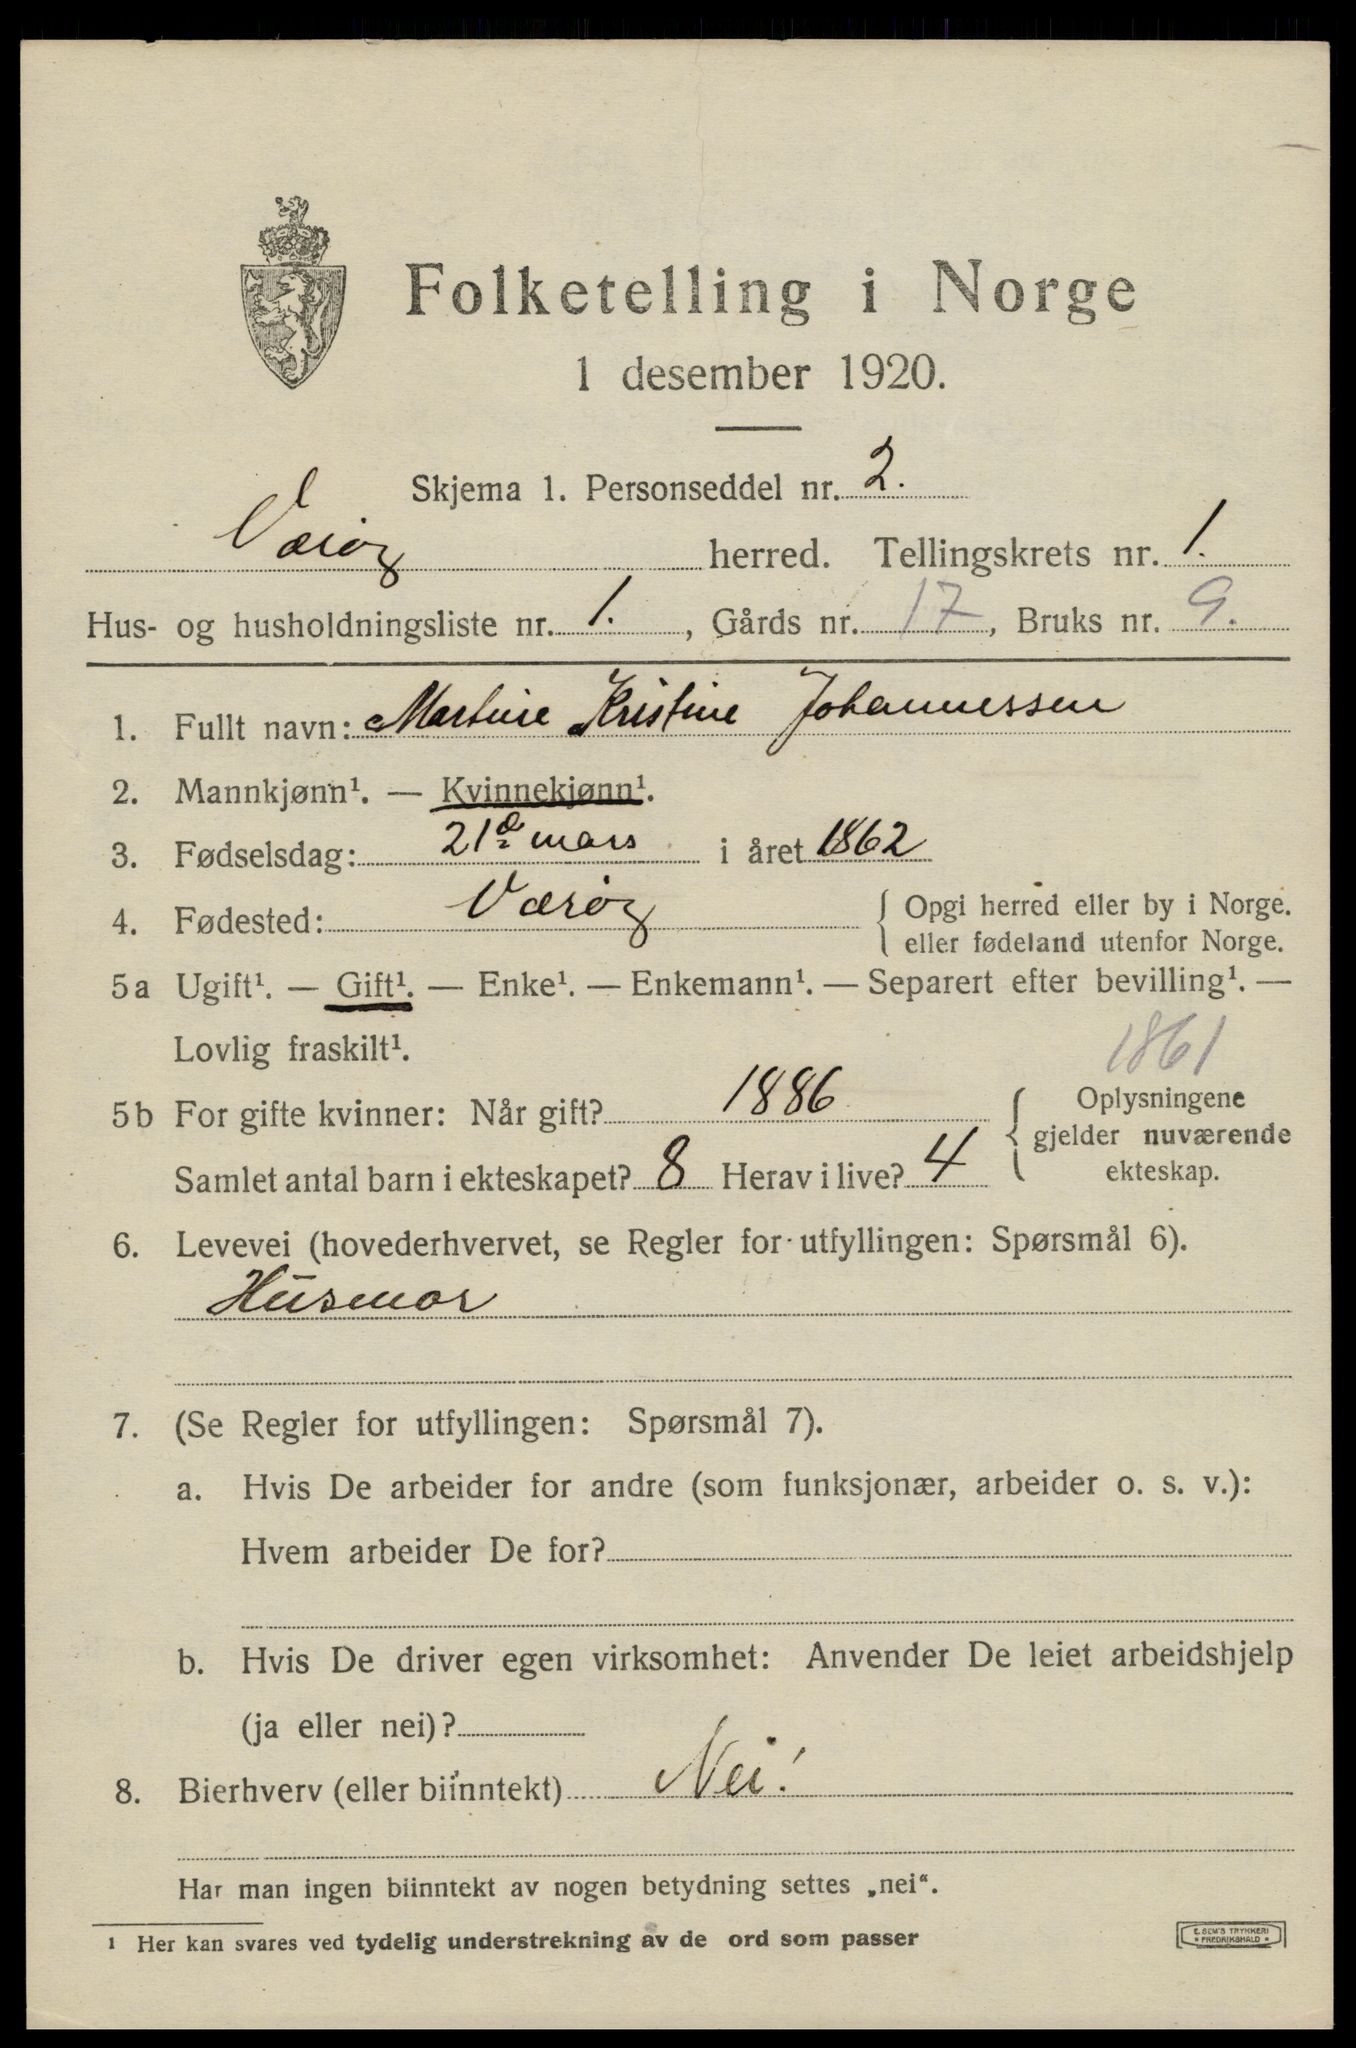 Folketelling i Norge
1 desember 1920.
Skjema 1. Personseddel nr. 2.
Værøy herred. Tellingskrets nr. 1.
Hus- og husholdningsliste nr. 1. , Gårds nr. 17, Bruks nr. 9.
1. Fullt navn: Martine Kristine Johannessen
2. Mannkjønn¹. — Kvinnekjønn¹.
3. Fødselsdag: 21de mars i året 1862
4. Fødested: Værøy { Opgi herred eller by i Norge.
eller fødeland utenfor Norge.
5a Ugift¹. — Gift¹. — Enke¹. — Enkemann¹. — Separert efter bevilling¹. —
Lovlig fraskilt¹.
1861
5b For gifte kvinner: Når gift? 1886
Samlet antal barn i ekteskapet? 8 Herav i live? 4
{ Oplysningene
gjelder nuværende
ekteskap.
6. Levevei (hovederhvervet, se Regler for utfyllingen: Spørsmål 6).
Husmor
7. (Se Regler for utfyllingen: Spørsmål 7).
a. Hvis De arbeider for andre (som funksjonær, arbeider o. s. v.):
Hvem arbeider De for?
b. Hvis De driver egen virksomhet: Anvender De leiet arbeidshjelp
(ja eller nei)?
8. Bierhverv (eller biinntekt) Nei!
Har man ingen biinntekt av nogen betydning settes „nei“.
1 Her kan svares ved tydelig understrekning av de ord som passer
E. SEM'S TRYKKERI
* FREDRIKSHALD *